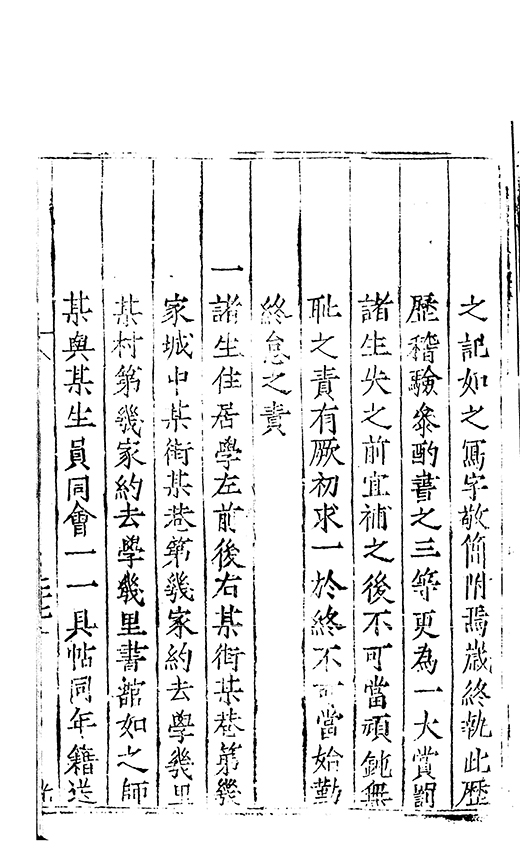 之記如之寫字敬簡附焉歲終執此歷
歷稽驗參酌書之三等更為一大賞罰
諸生失之前宜補之後不可當頑鈍無
恥之責有厥初求一於終不可當始勤
終怠之責
一諸生住居學左前後右某街某巷第幾
家城中某街某巷第幾家約去學幾里
某村第幾家約去學幾里書館如之師
某與某生員同會一一具帖同年籍送